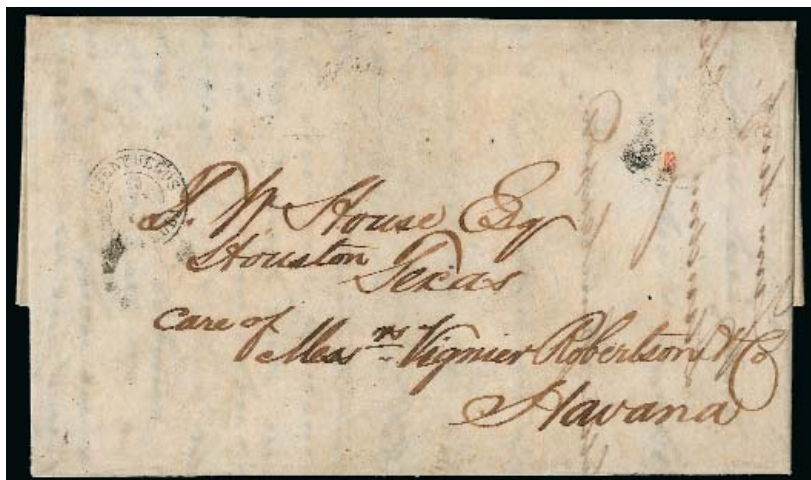 CIENFUEGOS
T. W House Esq
Houston
Texas
care of
Messrs Vignier Robertson & Co
Havana